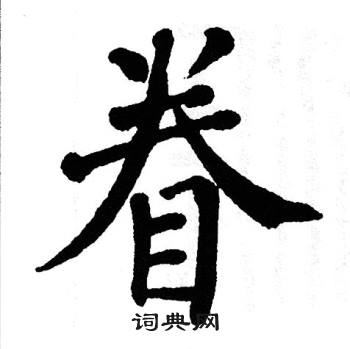 眷
词典网